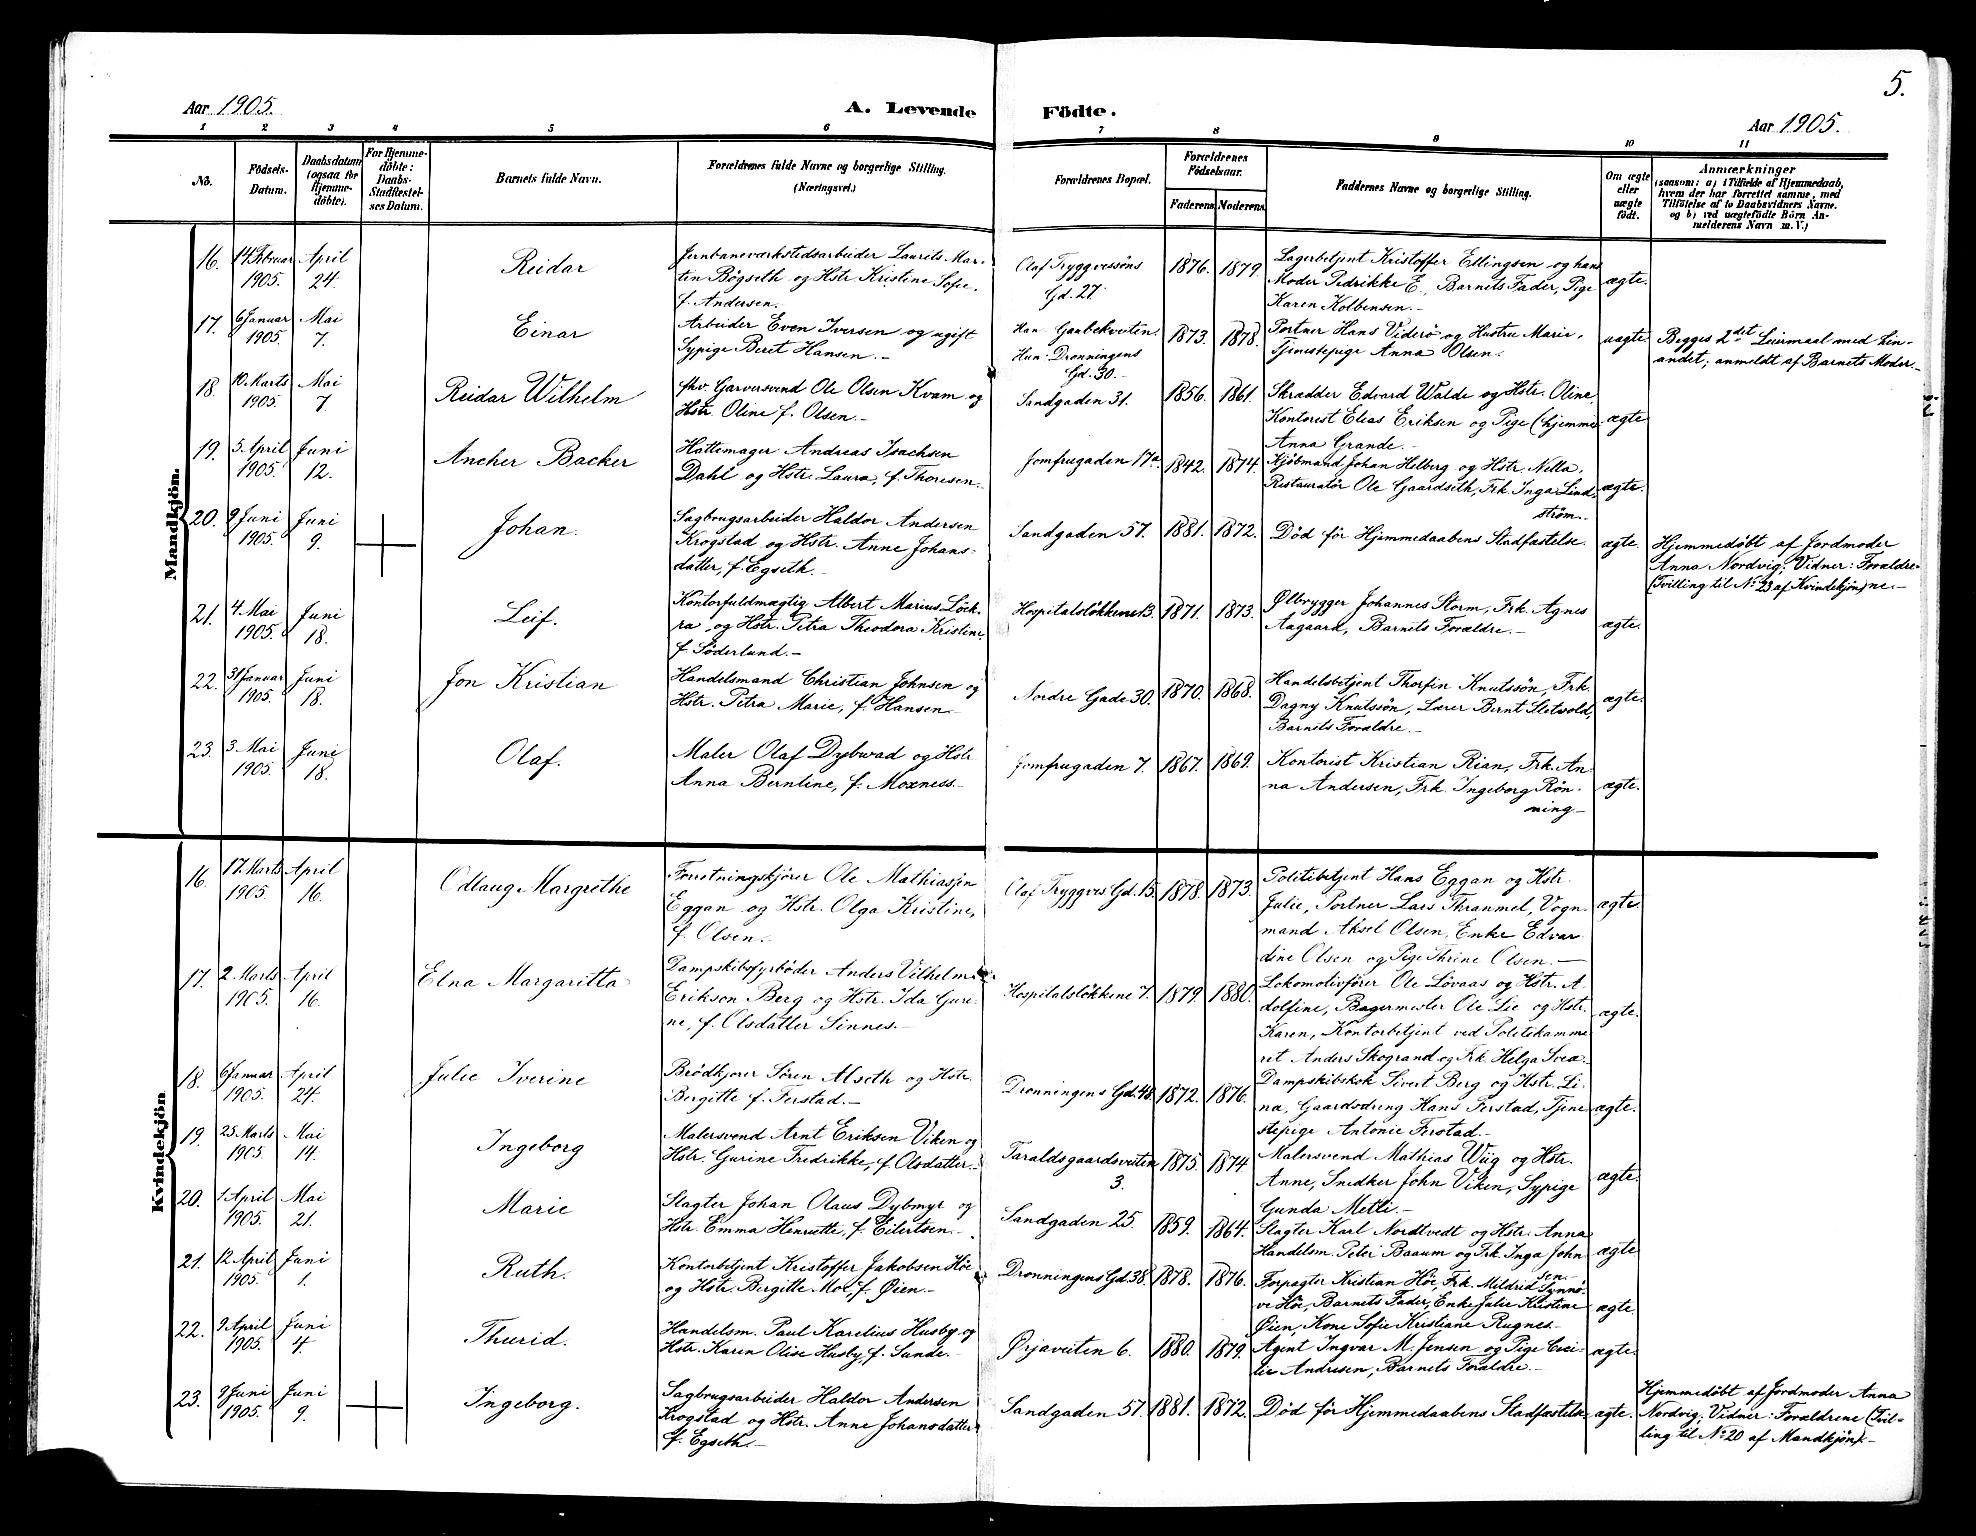 5.
Aar 1905.
A. Levende Födte.
Aar 1905.
1 2 3 4 5 6 7 8 9 10 11
No.
Födsels-
Datum.
Daabsdatum
(ogsaa for
Hjemme-
døbte).
For Hjemme-
døbte:
Daabs-
Stadfæstel-
ses Datum.
Barnets fulde Navn.
Forældrenes fulde Navne og borgerlige Stilling.
(Næringsvei.)
Forældrenes Bopæl.
Forældrenes
Födselsaar.
Faderens
Moderens
Faddernes Navne og borgerlige Stilling.
Om ægte
eller
uægte
født.
Anmærkninger
(saasom: a) i Tilfælde af Hjemmedaab,
hvem der har forrettet samme, med
Tilföielse af to Daabsvidners Navne.
og b) ved uægtefödte Börn An-
melderens Navn m. V.)
Mandkjön.
16.
14 Februar
1905.
April
24.
Reidar
Jernbaneværkstedsarbeider Laurits Mar-
tin Bögseth og Hstr. Kristine Sofie,
f. Andersen.
Olaf Tryggvessöns
Gd. 27.
1876.
1879.
Lagerbetjent Kristoffer Ellingsen og hans
Moder Pedrikke E., Barnets Fader, Pige
Karen Kolbensen.
ægte.
17.
6 Januar
1905.
Mai
7.
Einar
Arbeider Even Iversen og ugift
Sypige Beret Hansen.-
Han: Gaubekveiten.
Hun: Dronningens
Gd. 30.-
1873.
1878.
Portner Hans Viderö og Hustru Marie,
Tjenestepige Anna Olsen.
uægte
Begges 2det Leiermaal med hin-
anden; anmeldt af Barnets Moder.-
18.
10. Marts
1905.
Mai
7.
Reidar Wilhelm
fhv. Garversvend Ole Olsen Kvam og
Hstr. Oline f. Olsen.-
Sandgaden 31.
1856.
1861.
Skrædder Edvard Walde og Hstr. Oline,
Kontorist Elias Eriksen og Pige (hjemme
Anna Grande.-
ægte
19.
5. April
1905.
Juni
12.
Ancher Backer
Hattemager Andreas Isachsen
Dahl og Hstr. Laura, f. Thoresen.
Jomfrugaden 17a.
1842.
1874.
Kjöbmand Johan Helberg og Hstr. Nella,
Restauratør Ole Gaardseth, Frk. Inga Lind-
ström.
ægte.
20.
9 Juni
1905.
Juni
9.
Johan.
Sagbrugsarbeider Haldor Andersen
Krogstad og Hstr. Anne Johans-
datter, f. Egseth.-
Sandgaden 57.
1881.
1872.
Död för Hjemmedaabens Stadfæstelse.
ægte.
Hjemmedøbt af Jordmoder
Anna Nordvig; Vidner: Forældre-
(Tvilling til No 23 af Kvindekjön) ne.-
21.
4. Mai
1905.
Juni
18.
Leif.
Kontorfuldmægtig Albert Marius Löck-
ra, og Hstr. Petra Theodora Kristine,
f. Söderlund.-
Hospitalslökkene 13.
1871.
1873.
Ølbrygger Johannes Storm, Frk. Agnes
Aagaard, Barnets Forældre.-
ægte.
22.
31 Januar
1905.
Juni
18.
Jon Kristian
Handelsmand Christian Johnsen og
Hstr. Petra Marie, f. Hansen.-
Nordre Gade 30.
1870.
1868.
Handelsbetjent Thorfin Knutssön, Frk.
Dagny Knutssön, Lærer Bernt Sletvold,
Barnets Forældre.-
ægte.
23.
3. Mai
1905.
Juni
18.
Olaf.
Maler Olaf Dybwad og Hstr.
Anna Berntine, f. Moxness.-
Jomfrugaden 7.
1867.
1869.
Kontorist Kristian Rian, Frk. An-
na Andersen, Frk. Ingeborg Rön-
ning-
ægte.
Kvindekjön
16.
17. Marts
1905.
April
16.
Odlaug Margrethe
Forretningskjörer Ole Mathiassen
Eggan og Hstr. Olga Kristine,
f. Olsen.
Olaf Tryggves Gd. 15.
1878.
1873.
Politibetjent Hans Eggan og Hstr.
Julie, Portner Lars Thranmel, Vogn-
mand Aksel Olsen, Enke Edvar-
dine Olsen og Pige Thrine Olsen.-
ægte.
17.
2. Marts
1905.
April
16.
Elna Margaritta
Dampskibsfyrböder Anders Vilhelm
Erikson Berg og Hstr. Ida Guri-
ne, f. Olsdatter Sinnes.-
Hospitalslökkene 7.
1879.
1880.
Lokomotivförer Ole Lövaas og Hstr. A-
dolfine, Bagermester Ole Lie og Hstr.
Karen, Kontorbetjent ved Politikamme-
ret Anders Skogrand og Frk. Helga Svea.-
ægte.
18.
6 Januar
1905.
April
24.
Julie Iverine
Brödkjörer Sören Alseth og Hstr.
Bergitte f. Ferstad.-
Dronningens Gd. 48.
1872.
1876.
Dampskibskok Sivert Berg og Hstr. Li-
na, Gaardsdreng Hans Ferstad, Tjene-
stepige Antonie Ferstad.-
ægte.
19.
25. Marts
1905.
Mai
14.
Ingeborg
Malersvend Arnt Eriksen Viken og
Hstr. Gurine Fredrikke, f. Olsdatter.-
Taraldsgaardsveiten
3.
1875.
1874.
Malersvend Mathias Wiig og Hstr.
Anne, Snedker John Viken, Sypige
Gunda Metli.-
ægte.
20.
1. April
1905.
Mai
21.
Marie
Slagter Johan Olaus Dybmyr og
Hstr. Emma Henriette, f. Eilertsen.-
Sandgaden 25.
1859.
1864.
Slagter Karl Nordtvedt og Hstr. Anna
Handelsm. Peter Baaum og Frk. Inga John-
sen.-
ægte
21.
12. April
1905.
Juni
1.
Ruth.
Kontorbetjent Kristoffer Jakobsen Höe
og Hstr. Bergitte Moe, f. Øien.-
Dronningens Gd. 38.
1878.
1876.
Forpagter Kristian Höe, Frk. Mildrid Synnö-
ve Höe, Barnets Fader, Enke Julie Kristine
Øien, Kone Sofie Kristiane Rugnes.-
ægte.
22.
9. April
1905.
Juni
4.
Thurid.
Handelsm. Paul Karelius Husby og
Hstr. Karen Olise Husby, f. Sunde.-
Ørjaveiten 6.
1880.
1879.
Agent Ingvar M. Jensen og Pige Ceci-
lie Andresen, Barnets Forældre.-
ægte.
23.
9 Juni
1905.
Juni
9.
Ingeborg.
Sagbrugsarbeider Haldor Andersen
Krogstad og Hstr. Anne Johansdatter
f. Egseth.-
Sandgaden 57.
1881.
1872.
Död för Hjemmedaabens Stadfæstelse
ægte.
Hjemmedøbt af Jordmoder Anna
Nordvig; Vidner: Forældrene (Tvil-
ling til No 20 af Mandkjön).-